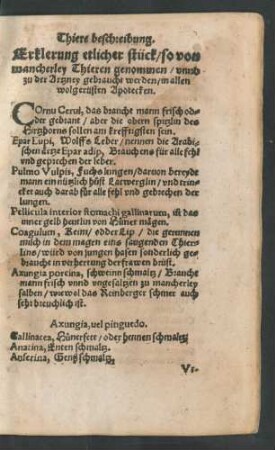 Thiere beschreibung.
Erklerung etlicher stück / so von
mancherley Thieren genommen / vnnd
zu der Artzney gebraucht werden / in allen
wolgerüsten Apotecken.
COrnu Cerui, das braucht mann frisch od-
der gebrant / aber die obern spitzlin des
Hirtzhorns sollen am krefftigsten sein.
Epar Lupi, Wolffs Leber / nennen die Arabi-
schen ärtzt Epar adip, Brauchens für alle fehl
vnd geprechen der leber.
Pulmo Vulpis, Fuchs lungen / daruon bereydt
mann ein nützlich hůst Latwerglin / vnd trinc-
cker auch darab für alle fehl vnd gebrechen der
lungen.
Pellicula interior stomachi gallinarum, ist das
inner gelb heutlin von Hüner mägen.
Coagulum, Keim / odder Lip / die gerunnen
milch in dem magen eins saugenden Thier-
lins / würd von jungen hasen sonderlich ge-
braucht in verherung der frawen brüst.
Axungia porcina, schweinn schmaltz / Brauche
mann frisch vnnd vngesaltzen zu mancherley
salben / wiewol das Reinberger schmer auch
sehr breuchlich ist.
Axungia, uel pinguedo.
Gallinacea, Hünerfett / oder hennen schmaltz
Anatina, Enten schmaltz.
Anserina, Genß schmaltz.
Vi-